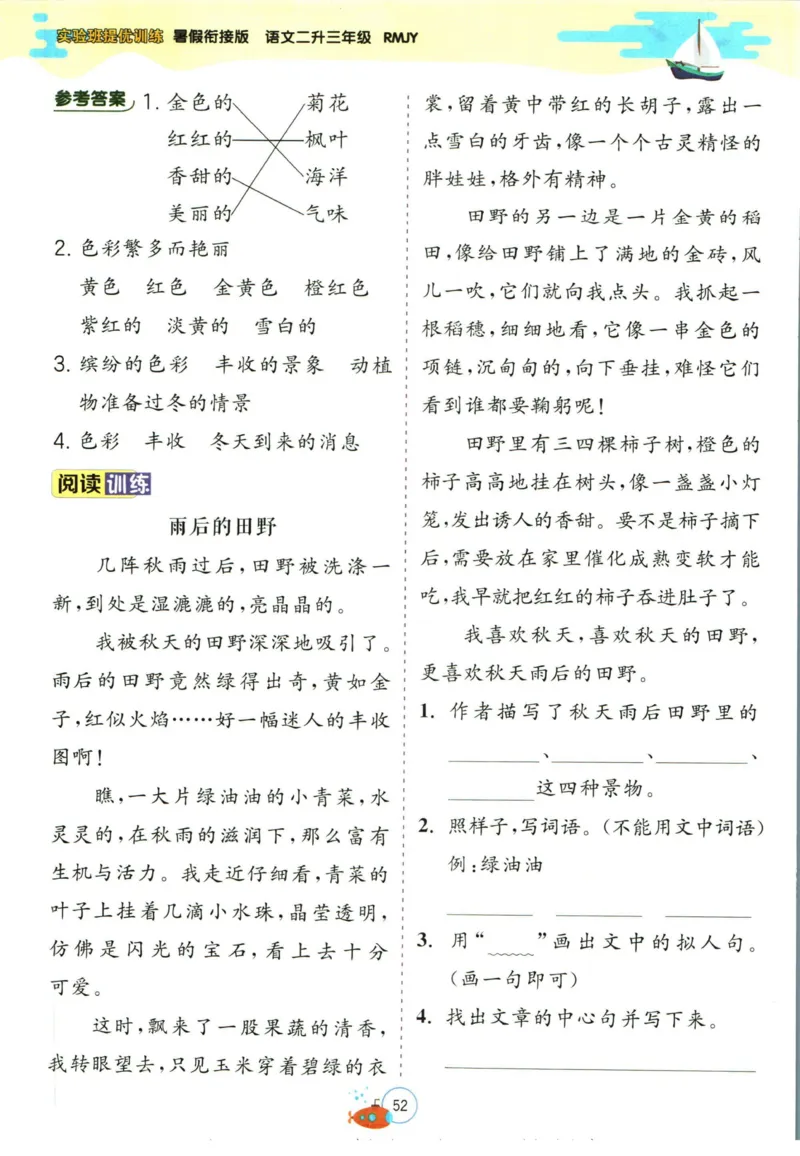 实验班提优训练 暑假衔接版 语文二升三年级 RMJY
参考答案 1. 金色的 菊花
红红的 枫叶
香甜的 海洋
美丽的 气味
2. 色彩繁多而艳丽
黄色 红色 金黄色 橙红色
紫红的 淡黄的 雪白的
3. 缤纷的色彩 丰收的景象 动植
物准备过冬的情景
4. 色彩 丰收 冬天到来的消息
阅读训练
雨后的田野
几阵秋雨过后，田野被洗涤一
新，到处是湿漉漉的，亮晶晶的。
我被秋天的田野深深地吸引了。
雨后的田野竟然绿得出奇，黄如金
子，红似火焰……好一幅迷人的丰收
图啊！
瞧，一大片绿油油的小青菜，水
灵灵的，在秋雨的滋润下，那么富有
生机与活力。我走近仔细看，青菜的
叶子上挂着几滴小水珠，晶莹透明，
仿佛是闪光的宝石，看上去十分
可爱。
这时，飘来了一股果蔬的清香，
我转眼望去，只见玉米穿着碧绿的衣
裳，留着黄中带红的长胡子，露出一
点雪白的牙齿，像一个个古灵精怪的
胖娃娃，格外有精神。
田野的另一边是一片金黄的稻
田，像给田野铺上了满地的金砖，风
儿一吹，它们就向我点头。我抓起一
根稻穗，细细地看，它像一串金色的
项链，沉甸甸的，向下垂挂，难怪它们
看到谁都要鞠躬呢！
田野里有三四棵柿子树，橙色的
柿子高高地挂在树头，像一盏盏小灯
笼，发出诱人的香甜。要不是柿子摘下
后，需要放在家里催化成熟变软才能
吃，我早就把红红的柿子吞进肚子了。
我喜欢秋天，喜欢秋天的田野，
更喜欢秋天雨后的田野。
1. 作者描写了秋天雨后田野里的
________、________、________、
________这四种景物。
2. 照样子，写词语。（不能用文中词语）
例：绿油油
________ ________ ________
3. 用“____”画出文中的拟人句。
（画一句即可）
4. 找出文章的中心句并写下来。
________________
52